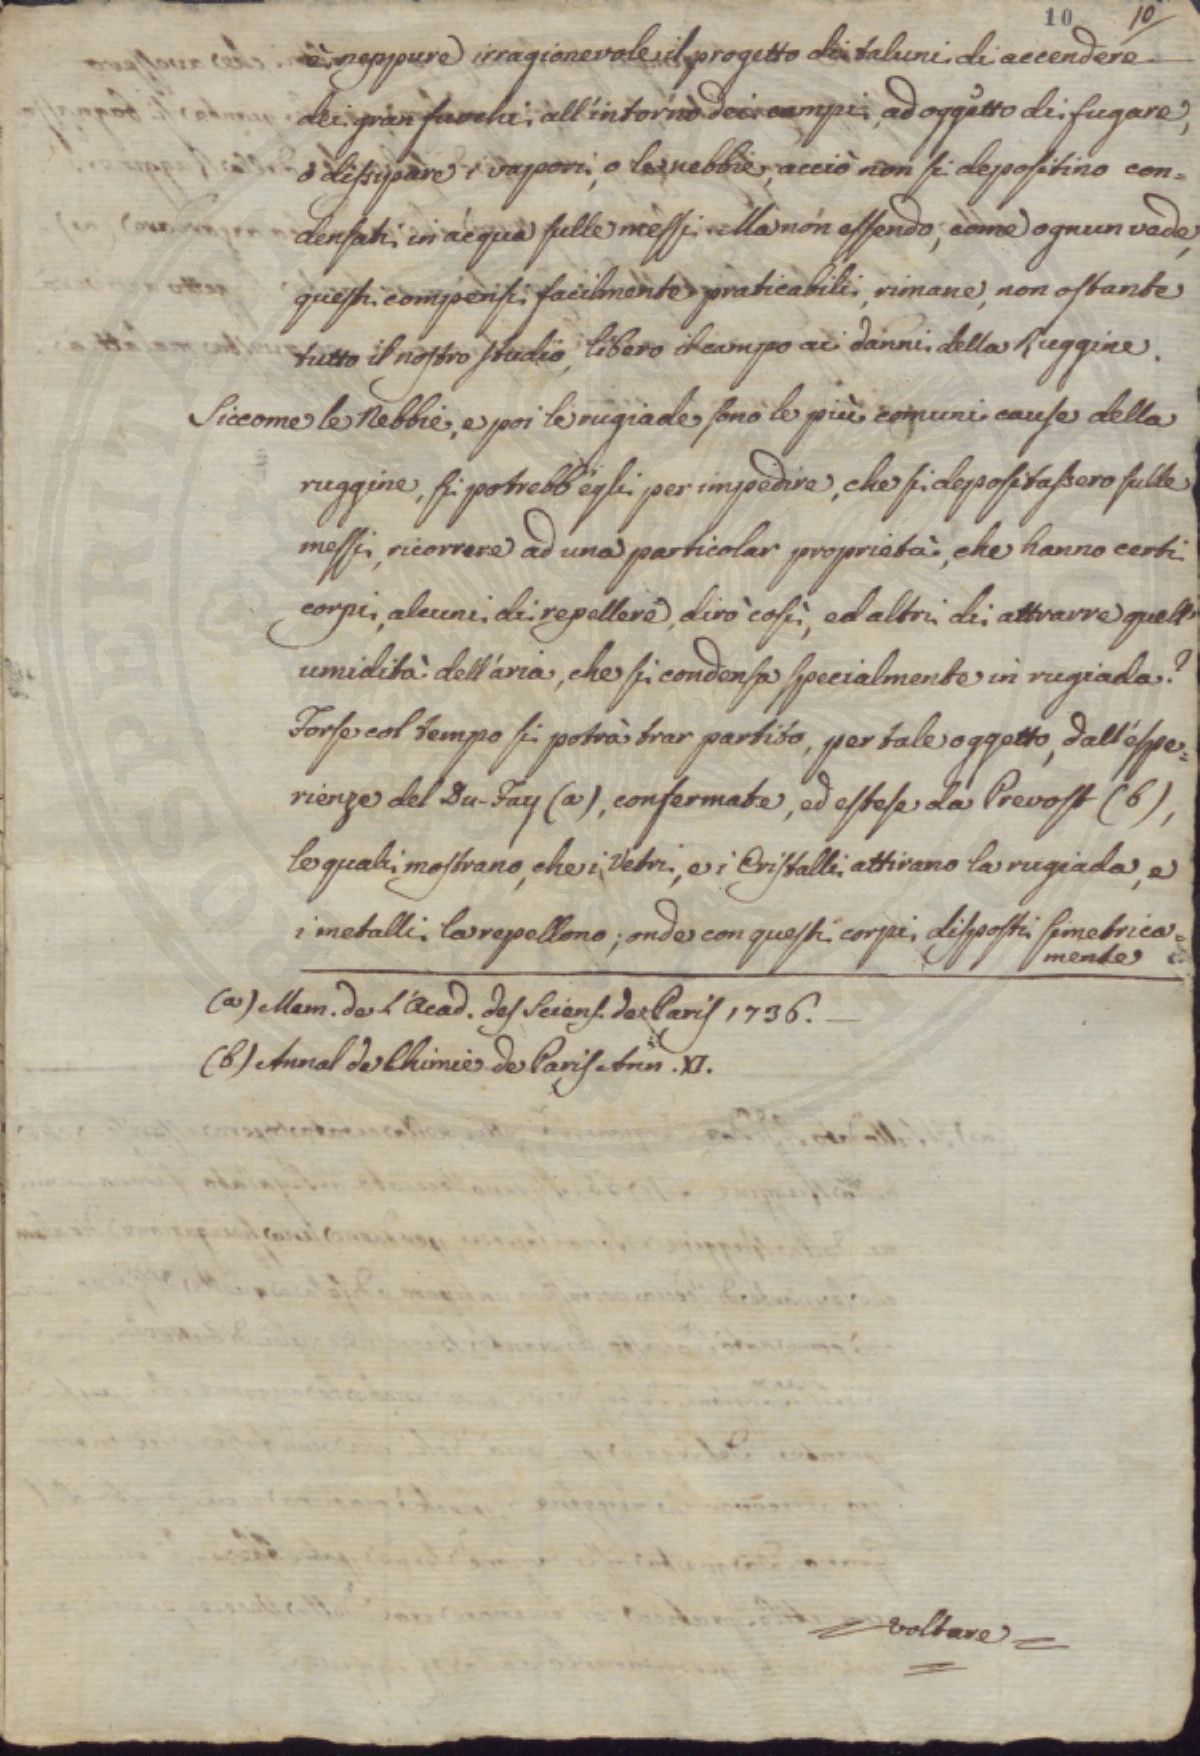 10 10
è neppure irragionevole il progetto di taluni di accendere
dei gran fuochi all'intorno dei campi, ad oggetto di fugare,
o dissipare i vapori, o le nebbie, acciò non si depositino con=
densati in acqua sulle messi. Ma non essendo, come ognun vede,
questi compensi facilmente praticabili, rimane, non ostante
tutto il nostro studio, libero il campo ai danni della Ruggine.
Siccome le Nebbie, e poi le rugiade sono le più comuni cause della
ruggine, si potrebb'egli per impedire, che si depositassero sulle
messi, ricorrere ad una particolar proprietà, che hanno certi
corpi, alcuni di repellere, dirò così, ed altri di attrarre quell'
umidità dell'aria, che si condensa specialmente in rugiada?
Forse col tempo si potrà trar partito, per tale oggetto, dall'espe=
rienze del Du-Fay (a), confermate, ed estese da Prevost (b),
le quali mostrano, che i Vetri, e i Cristalli attirano la rugiada, e
i metalli la repellono; onde con questi corpi disposti simetrica=
mente
(a) Mem. de L'Acad. des Sciens. de Paris 1736.
(b) Annal de Chimie de Paris Ann. XI.
voltare